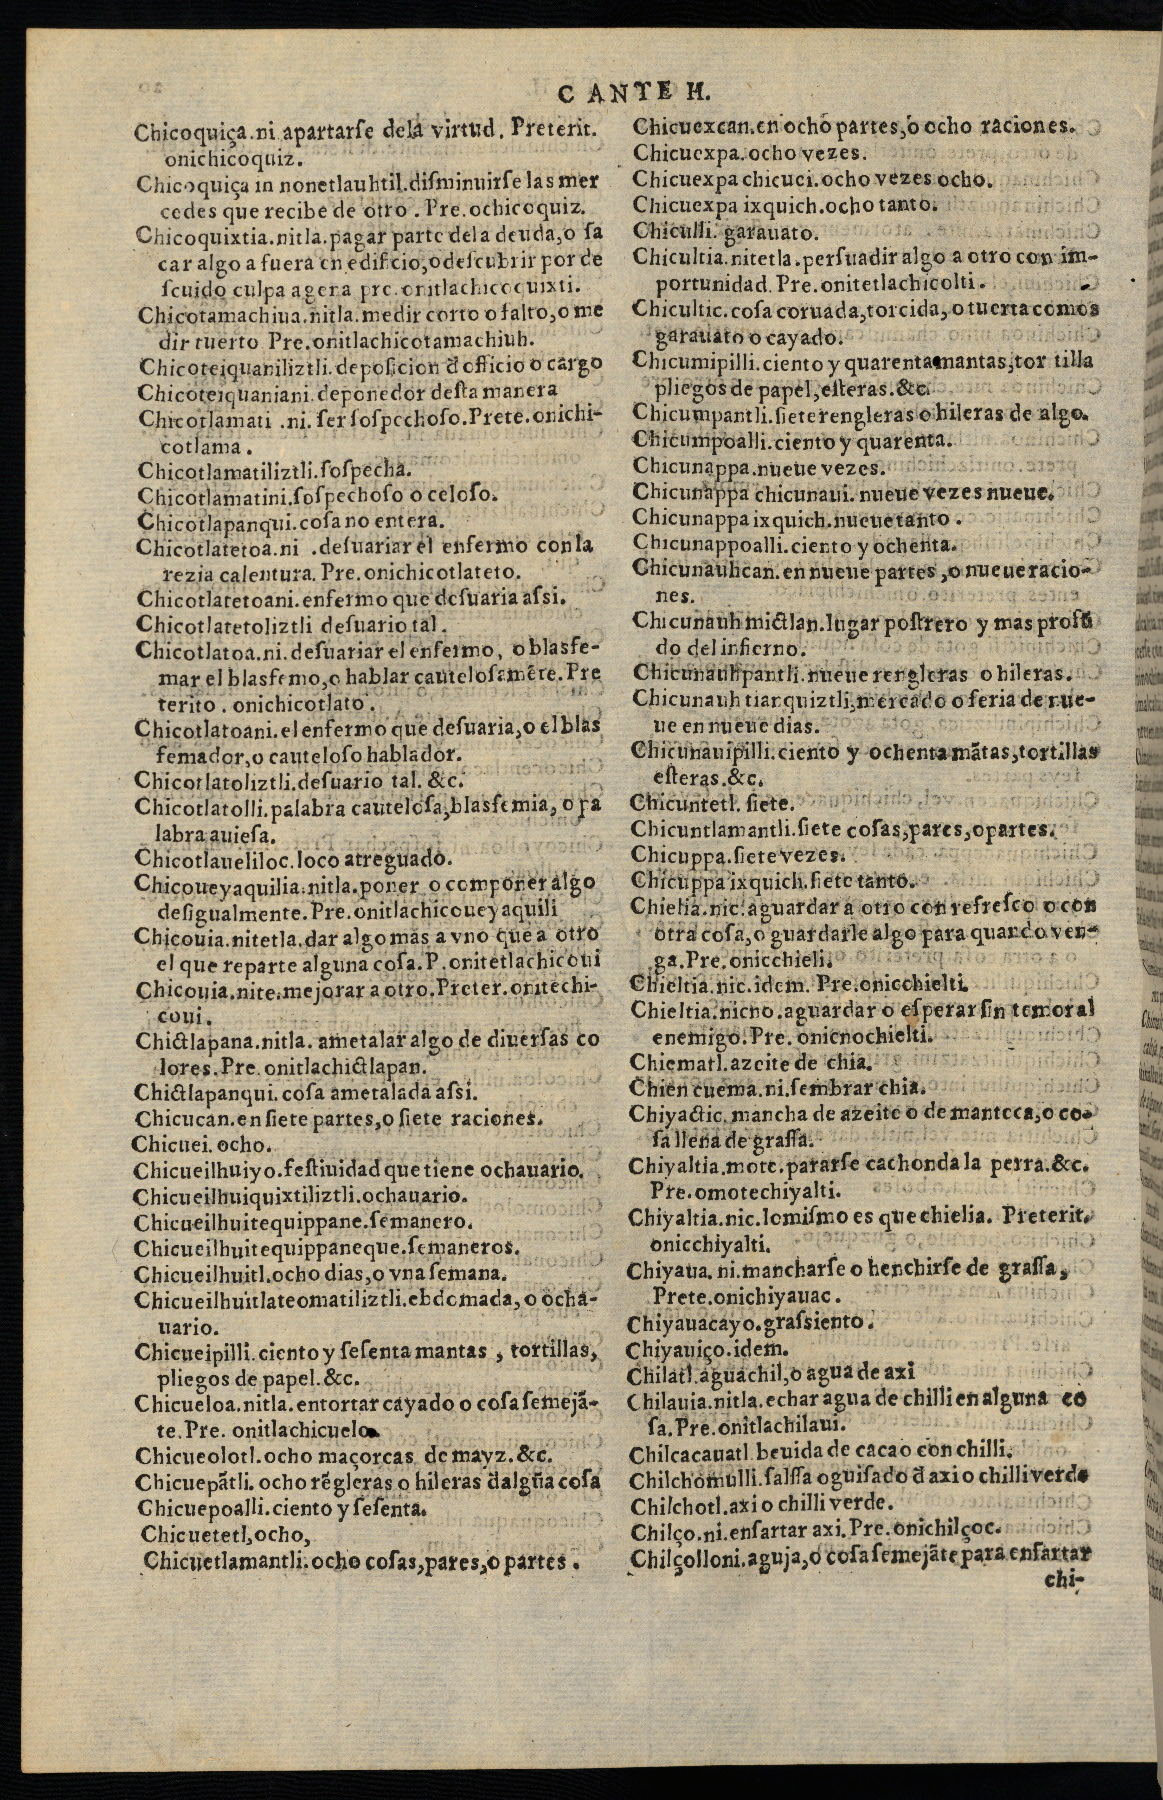 C ANTE H.
Chicoquiça.ni apartarſe dela virtud. Preterit.
onichicoquiz.
Chicoquiça in nonetlauhtil.diſminuirſe las mer
cedes que recibe de otro . Pre. ochicoquiz.
Chicoquixtia.nitla.pagar parte dela deuda,o ſa
car algo a fuera en edificio,o deſcubrir por de
ſcuido culpa agena pre. onitlachicoquixti.
Chicotamachiua.nitla.medir corto o falto,o me
dir tuerto Pre.onitlachicotamachiuh.
Chicoteiquaniliztli.depoſicion đ officio o cargo
Chicoteiquaniani.deponedor deſta manera
Chicotlamati .ni. ſer ſoſpechoſo.Prete.onichi-
cotlama .
Chicotlamatiliztli.ſoſpecha.
Chicotlamatini.ſoſpechoſo o celoſo.
Chicotlapanqui.coſa no entera.
Chicotlatetoa.ni .deſuariar el enfermo con la
rezia calentura. Pre. onichicotlateto.
Chicotlatetoani.enfermo que deſuaria aſsi.
Chicotlatetoliztli deſuario tal.
Chicotlatoa.ni.deſuariar el enfermo, o blasfe-
mar el blasfemo,o hablar cauteloſamēte. Pre
terito . onichicotlato .
Chicotlatoani.el enfermo que deſuaria,o el blas
femador,o cauteloſo hablador.
Chicotlatoliztli.deſuario tal. &c.
Chicotlatolli.palabra cauteloſa,blasfemia, o pa
labra auieſa.
Chicotlaueliloc.loco atreguado.
Chicoueyaquilia.nitla.poner o componer algo
deſigualmente.Pre.onitlachicoueyaquili
Chicouia.nitetla.dar algo mas a vno que a otro
el que reparte alguna coſa.P.onitetlachicoui
Chicouia.nite.mejorar a otro.Preter.onitechi-
coui.
Chictlapana.nitla. ametalar algo de diuerſas co
lores.Pre.onitlachictlapan.
Chictlapanqui.coſa ametalada aſsi.
Chicucan.en ſiete partes,o ſiete raciones.
Chicuei.ocho.
Chicueilhuiyo.feſtiuidad que tiene ochauario.
Chicueilhuiquixtiliztli.ochauario.
Chicueilhuitequippane.ſemanero.
Chicueilhuitequippaneque.ſemaneros.
Chicueilhuitl.ocho dias,o vna ſemana.
Chicueilhuitlateomatiliztli.ebdomada, o ocha-
uario.
Chicueipilli.ciento y ſeſenta mantas , tortillas,
pliegos de papel.&c.
Chicueloa.nitla.entortar cayado o coſa ſemejā-
te.Pre. onitlachicuelo.
Chicueolotl.ocho maçorcas de mayz.&c.
Chicuepātli.ocho rēgleras o hileras đ algūa coſa
Chicuepoalli.ciento y ſeſenta.
Chicuetetl,ocho,
Chicuetlamantli.ocho coſas,pares,o partes .
Chicuexcan.en ocho partes,o ocho raciones.
Chicuexpa.ocho vezes.
Chicuexpa chicuei.ocho vezes ocho.
Chicuexpa ixquich.ocho tanto.
Chiculli. garauato.
Chicultia.nitetla.perſuadir algo a otro con im-
portunidad.Pre.onitetlachicolti.
Chicultic.coſa coruada,torcida, o tuerta como
garauato o cayado.
Chicumipilli.ciento y quarenta mantas,tor tilla
pliegos de papel,eſteras.&c.
Chicumpantli.ſiete rengleras o hileras de algo.
Chicumpoalli.ciento y quarenta.
Chicunappa.nueue vezes.
Chicunappa chicunaui.nueue vezes nueue.
Chicunappa ixquich.nueue tanto .
Chicunappoalli.ciento y ochenta.
Chicunauhcan.en nueue partes ,o nueue racio-
nes.
Chicunauh mictlan.lugar poſtrero y mas profū
do del infierno.
Chicunauhpantli.nueue rengleras o hileras.
Chicunauh tianquiztli,mercado o feria de nue-
ue en nueue dias.
Chicunauipilli.ciento y ochenta mātas,tortillas
eſteras.&c.
Chicuntetl. ſiete.
Chicuntlamantli.ſiete coſas,pares,o partes.
Chicuppa.ſiete vezes.
Chicuppa ixquich.ſiete tanto.
Chielia.nic.aguardar a otro con refreſco o con
otra coſa,o guardarle algo para quando ven-
ga.Pre.onicchieli.
Chieltia.nic.idem. Pre.onicchielti.
Chieltia.nicno.aguardar o eſperar ſin temor al
enemigo.Pre. onicnochielti.
Chiematl.azeite de chia.
Chien cuema.ni.ſembrar chia.
Chiyactic.mancha de azeite o de manteca,o co-
ſa llena de graſſa.
Chiyaltia.mote.pararſe cachonda la perra.&c.
Pre.omotechiyalti.
Chiyaltia.nic.lo miſmo es que chielia. Preterit.
onicchiyalti.
Chiyaua.ni.mancharſe o henchirſe de graſſa,
Prete.onichiyauac.
Chiyauacayo.graſsiento.
Chiyauiço.idem.
Chilatl.aguachil,o agua de axi
Chilauia.nitla.echar agua de chilli en alguna co
ſa.Pre.onitlachilaui.
Chilcacauatl beuida de cacao con chilli.
Chilchomulli.ſalſſa o guiſado đ axi o chilli verde
Chilchotl.axi o chilli verde.
Chilço.ni.enſartar axi.Pre.onichilçoc.
Chilçolloni.aguja,o coſa ſemejāte para enſartar
chi-